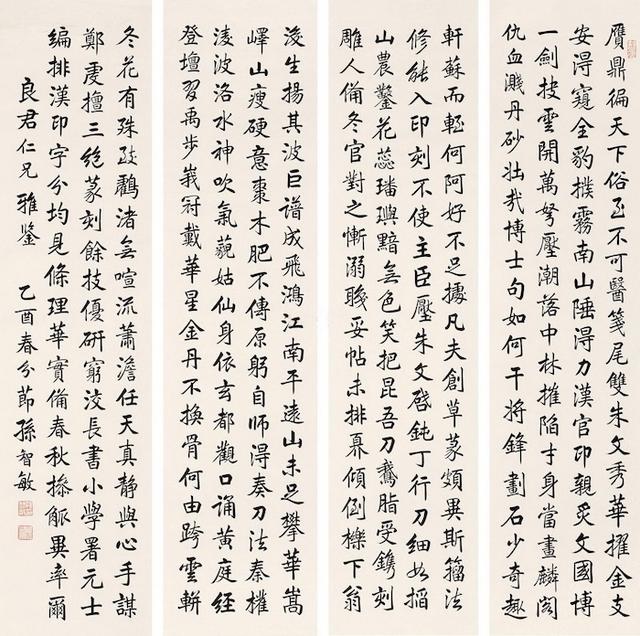 贋鼎徧天下俗至不可醫箋尾雙朱文秀華擢金支
安得窺全豹撲霧南山陲得力漢官印親炙文國博
一劍披雲開萬弩壓潮落中林摧陷才身當畫麟閣
仇血濺丹砂壯哉博士句如何干將鋒劃石少奇趣
軒蘇而輊何阿好不足據凡夫創草篆頗異斯籀法
修能入印刻不使主臣壓朱文啓鈍丁行刀細如搯
山農鑿花蕊璠璵黯無色笑把昆吾刀鶩脂受鐫刻
雕人備冬官對之慚溺職妥帖未排奡傾倒櫟下翁
浚生揚其波巨譜成飛鴻江南平遠山未足攀華嵩
嶧山瘦硬意棗木肥不傳原躬自師得奏刀法秦權
淩波洛水神吹氣藐姑仙身依玄都觀口誦黄庭經
登壇習禹步峩冠戴華星金丹不換骨何由跨雲軿
冬花有殊致鸝渚無喧流蕭澹任天真靜與心手謀
鄭虔擅三絶篆刻餘技優研窮洨長書小學署元士
編排漢印字分均見條理華實備春秋摻觚異率爾
良君仁兄雅鑒 乙酉春分節孫智敏